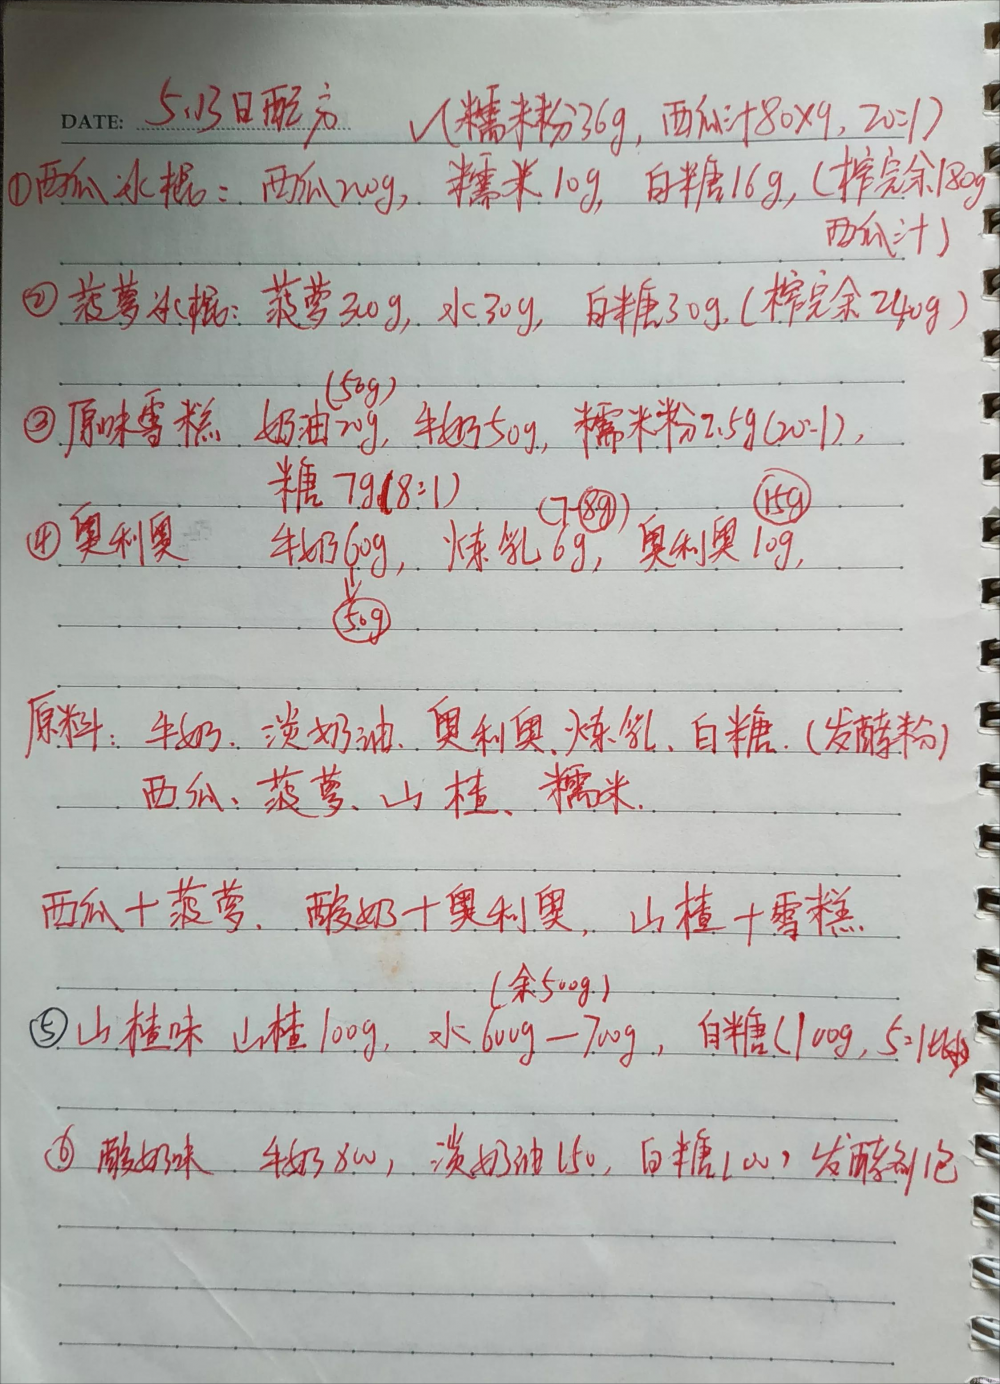 DATE: 5.13日配方
√(糯米粉36g, 西瓜汁80×9, 20:1)
①西瓜冰棍: 西瓜200g, 糯米10g, 白糖16g, (榨完余180g
西瓜汁)
②菠萝冰棍: 菠萝300g, 水30g, 白糖30g. (榨完余240g)
(50g)
③原味雪糕 奶油20g, 牛奶50g, 糯米粉2.5g(20:1),
糖7g(8:1)
(7-8g) 15g
④奥利奥 牛奶60g, 炼乳6g, 奥利奥10g,
50g
原料: 牛奶、淡奶油、奥利奥、炼乳、白糖. (发酵粉)
西瓜、菠萝、山楂、糯米.
西瓜+菠萝. 酸奶+奥利奥, 山楂+雪糕
(余500g.)
⑤山楂味 山楂100g. 水600g—700g, 白糖(100g, 5:1
⑥酸奶味 牛奶800, 淡奶油150, 白糖100, 发酵剂1包